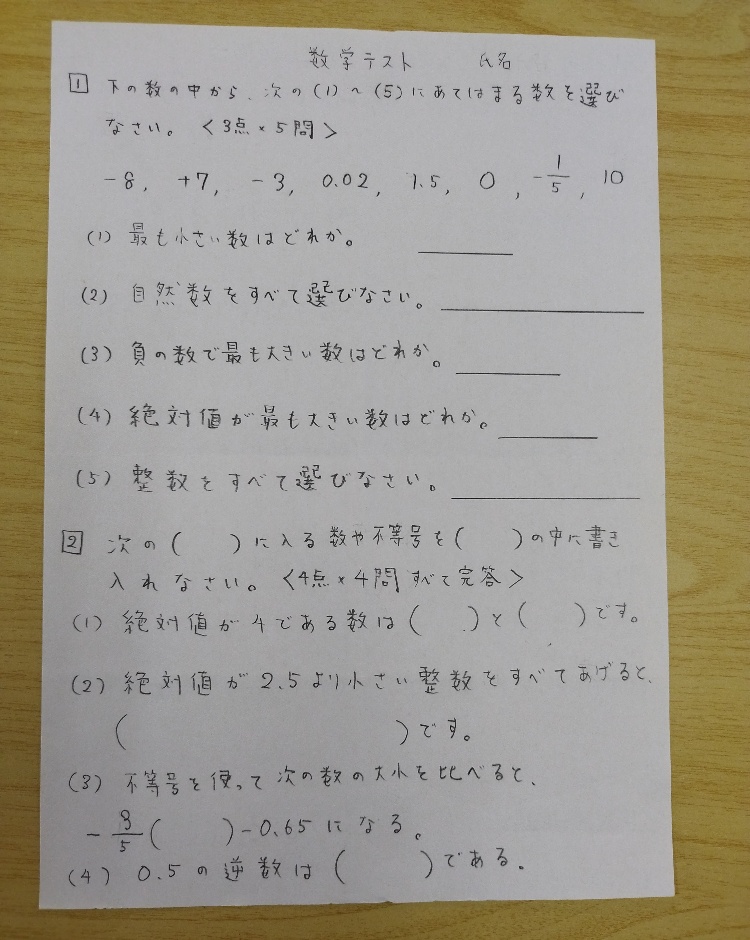 数学テスト 氏名
1 下の数の中から、次の(1)~(5)にあてはまる数を選び
なさい。 <3点×5問>
-8, +7, -3, 0.02, 1.5, 0, -1/5, 10
(1) 最も小さい数はどれか。
(2) 自然数をすべて選びなさい。
(3) 負の数で最も大きい数はどれか。
(4) 絶対値が最も大きい数はどれか。
(5) 整数をすべて選びなさい。
2 次の( )に入る数や不等号を( )の中に書き
入れなさい。 <4点×4問 すべて完答>
(1) 絶対値が4である数は( )と( )です。
(2) 絶対値が2.5より小さい整数をすべてあげると、
( )です。
(3) 不等号を使って次の数の大小を比べると、
( )-0.65になる。
(4) 0.5の逆数は( )である。